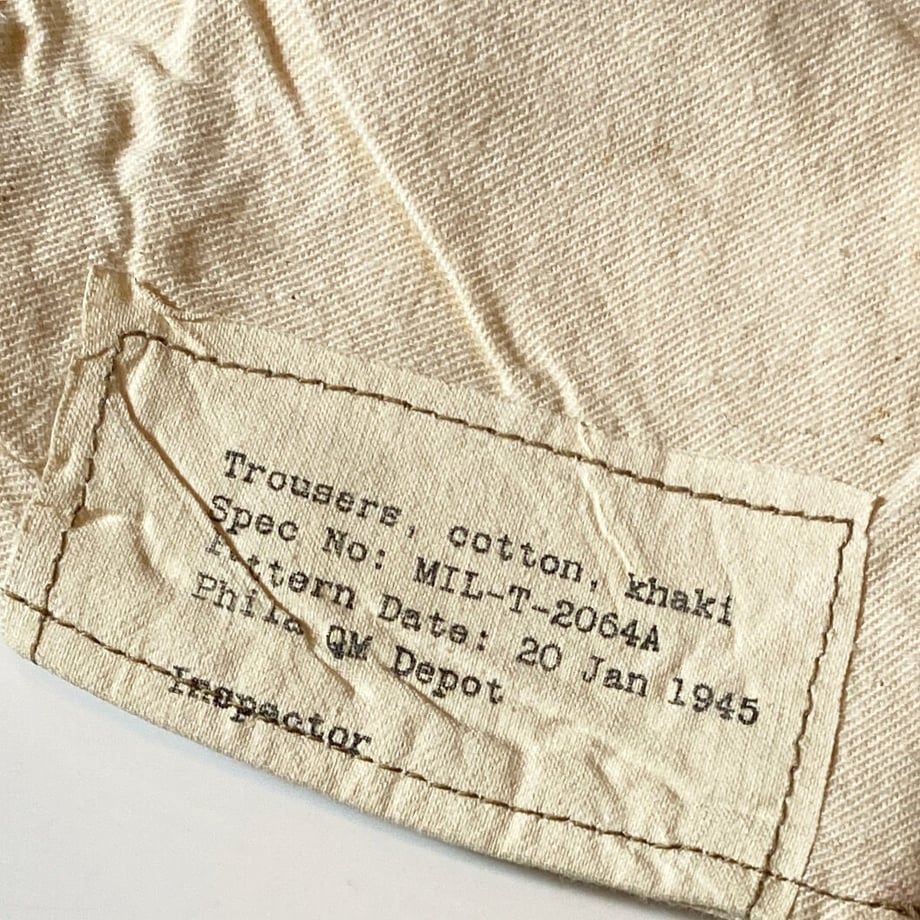 Trousers, cotton, khaki
Spec No: MIL-T-2064A
Pattern Date: 20 Jan 1945
Phila QM Depot
Inspector